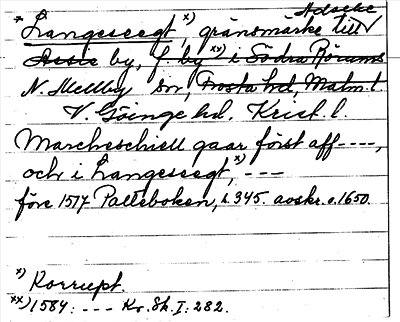 Adseke
* Langeseegt,ˣ⁾ gränsmärke till
Assie by, f. byˣˣ⁾ i Södra Rörums
N. Mellby sn, Frosta hd, Malm. l.
V. Göinge hd. Krist. l.
Marcheschiell gaar först aff ----,
och i Langeseegt,ˣ⁾ ---
före 1517 Palteboken, s. 345. avskr. c. 1650.
ˣ⁾ Korrupt.
ˣˣ⁾ 1584: --- Kr. Sk. I: 282.